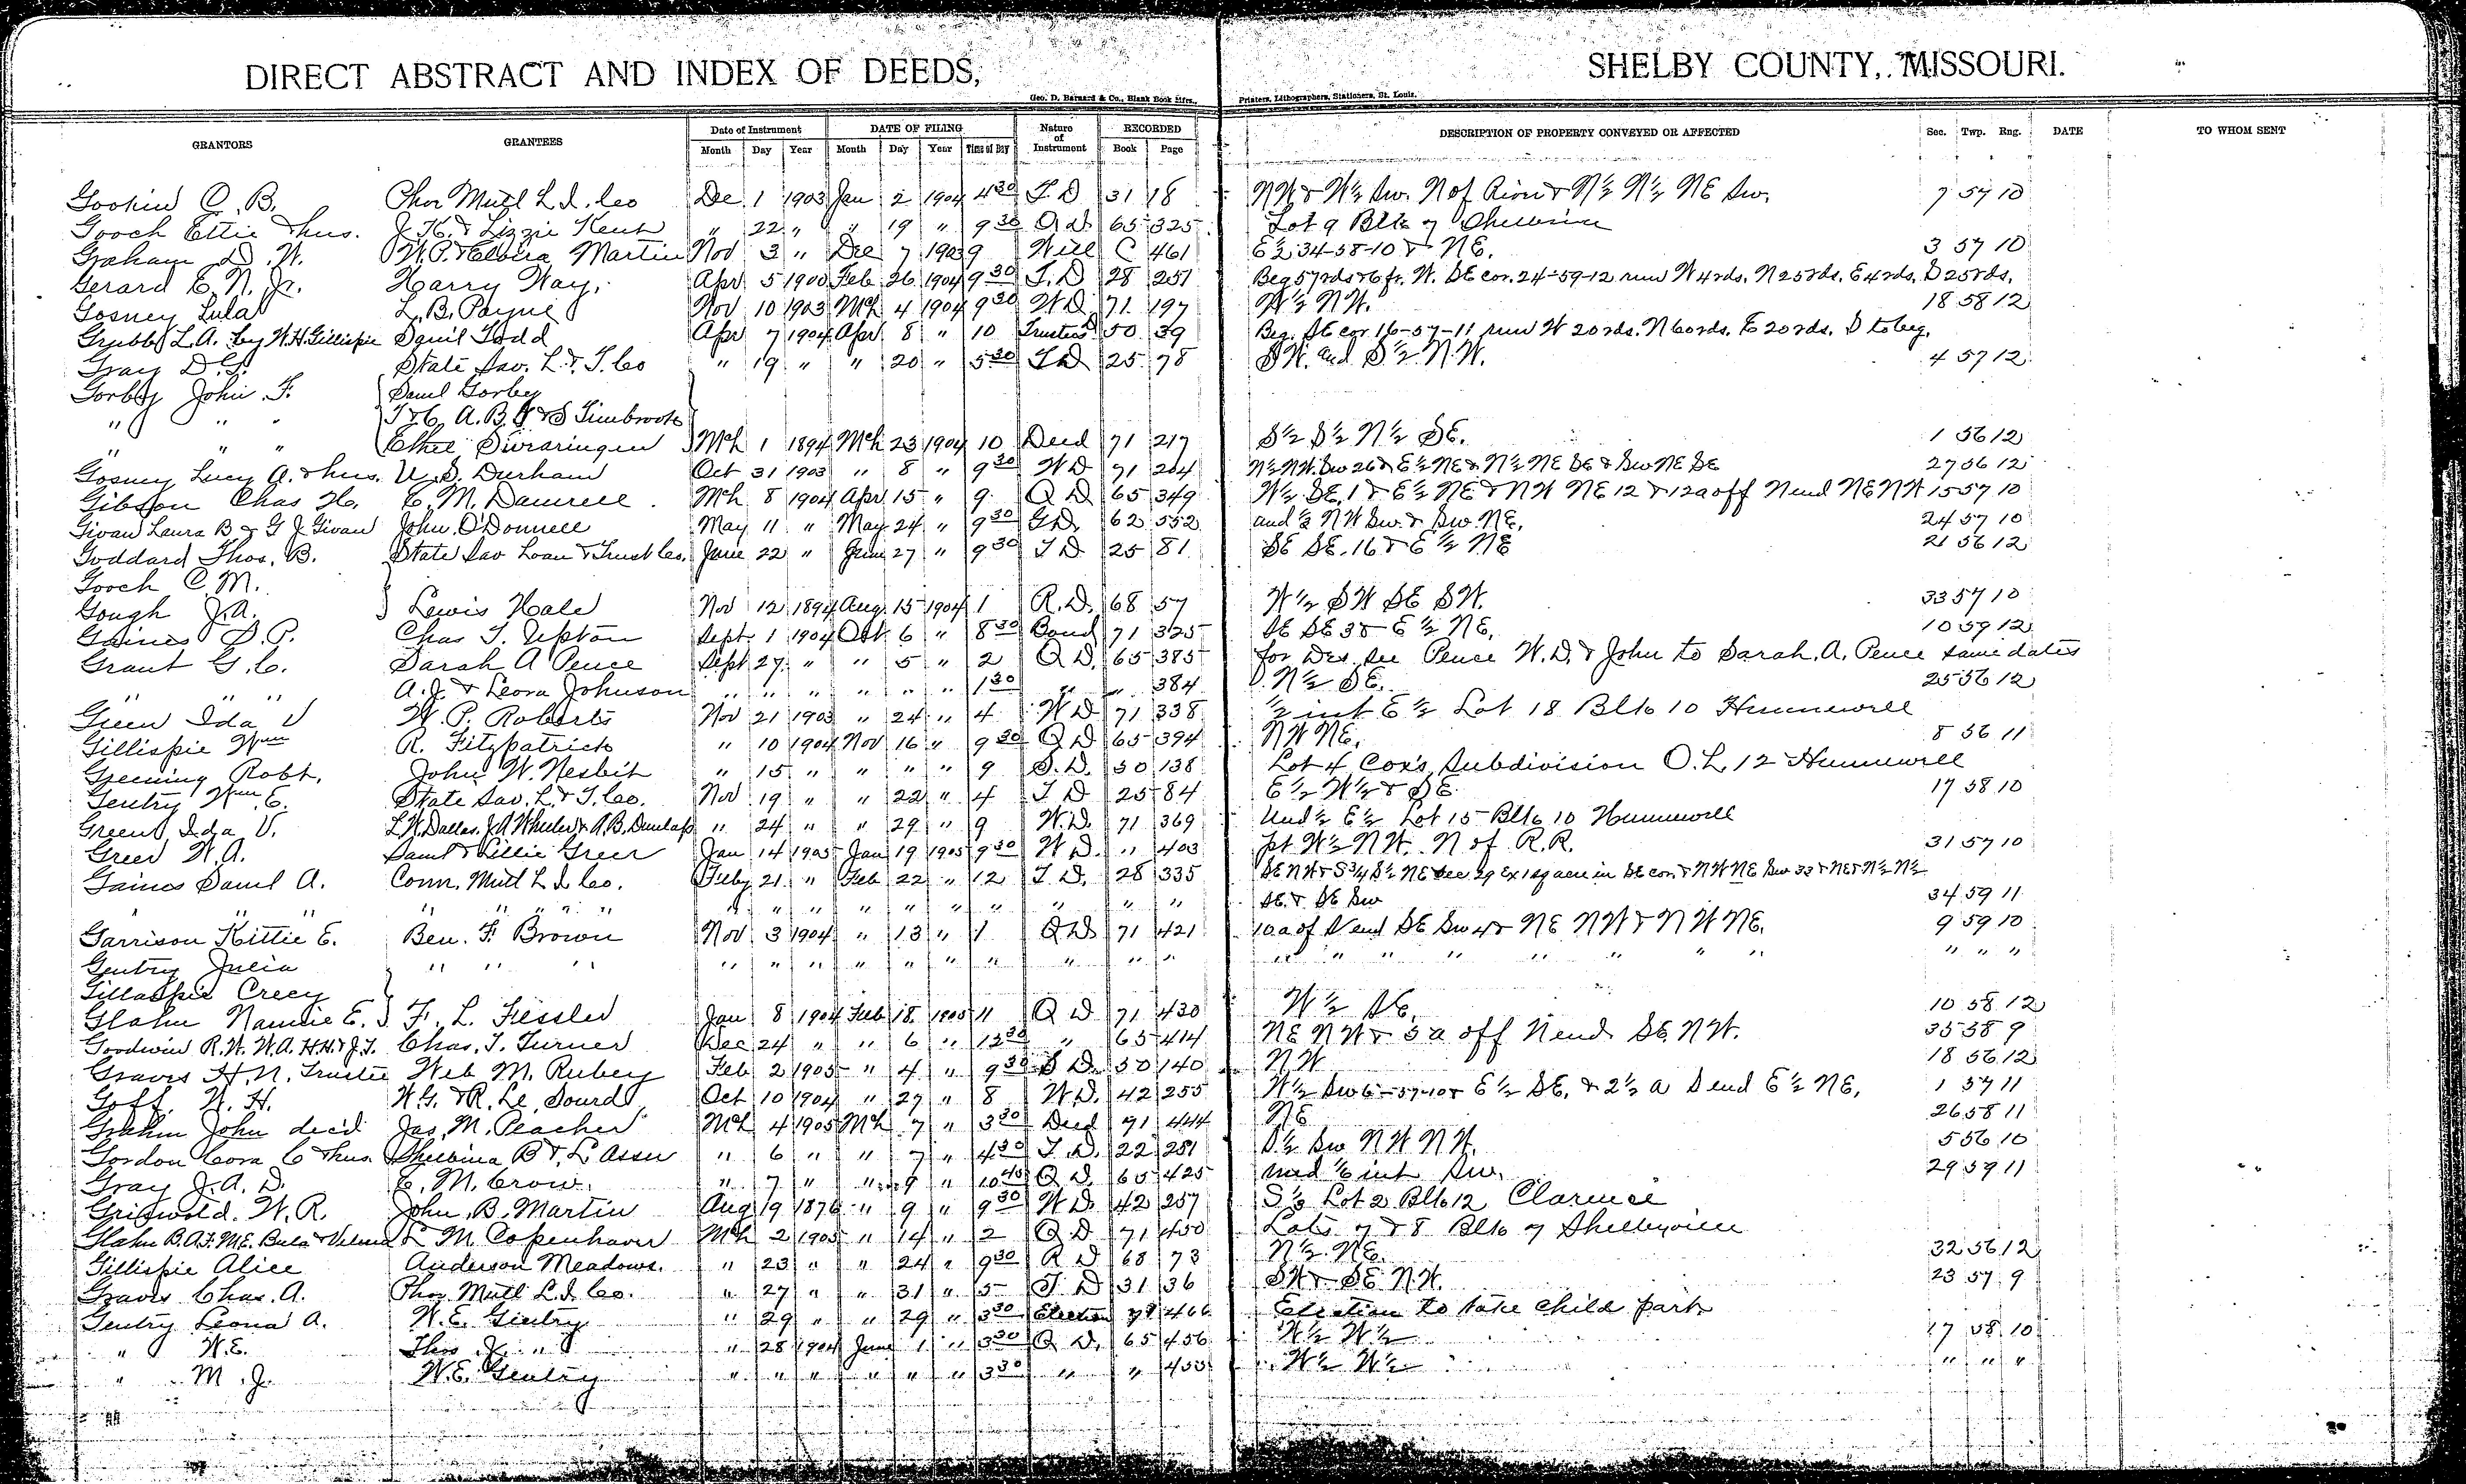 DIRECT ABSTRACT AND INDEX OF DEEDS, SHELBY COUNTY, MISSOURI.
Geo. D. Barnard & Co., Blank Book Mfrs., Printers, Lithographers, Stationers, St. Louis.
GRANTORS GRANTEES Date of Instrument DATE OF FILING Nature of Instrument RECORDED DESCRIPTION OF PROPERTY CONVEYED OR AFFECTED Sec. Twp. Rng. DATE TO WHOM SENT
Month Day Year Month Day Year Time of Day Book Page
Gookin C. B. Phox Mutl L I. Co Dec 1 1903 Jan 2 1904 4 30 T. D 31 18 NW & W½ Sw. N of River & N½ N½ NE Sw. 7 57 10
Gooch Ettie & hus. J. K. & Lizzie Kent " 22 " " 19 " 9 30 Q. D. 65 325 Lot 9 Blk 7 Shelbina
Graham D. W. W. P. & Elvira Martin Nov 3 " Dec 7 1903 9 Will C 461 E½ 34-58-10 & NE. 3 57 10
Gerard E. N. Jr. Harry Way. Apr 5 1900 Feb 26 1904 9 30 T. D 28 251 Beg 57 rds & 6 ft. W. SE cor. 24-59-12 run W 4 rds. N 25 rds. E 4 rds. S 25 rds.
Gosney Lula L. B. Payne Nov 10 1903 Mch 4 1904 9 30 W D. 71 197 W½ NW. 18 58 12
Grubbs L. A. by W. H. Gillispie Sam'l Todd Apr 7 1904 Apr 8 " 10 Trustees D 50 39 Beg. SE cor 16-57-11 run W 20 rds. N 60 rds. E 20 rds. S to beg.
Gray D. G. State Sav. L. & T. Co " 19 " " 20 " 5 30 T D 25 78 SW. and S½ N.W. 4 57 12
Gorby John F. Saml Gorby
" " " T & C, A. B. J & S Timbrook
" " " Ethel Swearingen Mch 1 1894 Mch 23 1904 10 Deed 71 217 S½ S½ N½ SE. 1 56 12
Gosney Lucy A. & hus. U. S. Durham Oct 31 1903 " 8 " 9 30 W D 71 204 N½ NW. Sw 26 & E½ NE & N½ NE SE & Sw NE SE 27 56 12
Gibson Chas H. E. M. Damrell Mch 8 1904 Apr 15 " 9 Q D 65 349 W½ SE. 1 & E½ NE & NW NE 12 & 12 a off N end NE NW 15 57 10
Givan Laura B & G J Givan John O'Donnell May 11 " May 24 " 9 30 G D. 62 552 and ⅓ NW Sw. & Sw. NE. 24 57 10
Goddard Thos. B. State Sav Loan & Trust Co. June 22 " June 27 " 9 30 T D 25 81 SE SE. 16 & E½ NE 21 56 12
Gooch C. M.
Gough J. A. Lewis Hale Nov 12 1894 Aug. 15 1904 1 R. D. 68 57 W½ SW SE SW. 33 57 10
Gaines S. P. Chas T. Upton Sept 1 1904 Oct 6 " 8 30 Bond 71 325 SE SE 3 & E½ NE. 10 59 12
Grant G. C. Sarah A Pence Sept 27 " " 5 " 2 Q D. 65 385 for Des see Pence W. D. & John to Sarah. A. Pence same dates
" " " A. J. & Leora Johnson " " " " " " 1 30 " " 384 N½ SE. 25 56 12
Green Ida V W. P. Roberts Nov 21 1903 " 24 " 4 W D 71 338 ½ int E½ Lot 18 Blk 10 Hunnewell
Gillispie Wm R. Fitzpatrick " 10 1904 Nov 16 " 9 30 Q D 65 394 NW NE. 8 56 11
Greening Robt. John W. Nesbit " 15 " " " " 9 S. D. 50 138 Lot 4 Cox's Subdivision O. L. 12 Hunnewell
Gentry Wm E. State Sav. L. & T. Co. Nov 19 " " 22 " 4 T D 25 84 E½ W½ & SE. 17 58 10
Green Ida V. L. W. Dallas, J A Wheeler & A. B. Dunlap " 24 " " 29 " 9 W. D. 71 369 Und ½ E½ Lot 15 Blk 10 Hunnewell
Greer W. A. Saml & Lillie Greer Jan 14 1905 Jan 19 1905 9 30 W D. " 403 pt W½ NW. N of R. R. 31 57 10
Gaines Saml A. Conn. Mutl L I Co. Feby 21 " Feb 22 " 12 T D. 28 335 SE NW & S ¾ S½ NE Sec 29 Ex 1 sq acre in SE cor & NW NE Sw 33 & NE & N½ N½
" " " " " " " " " " " " " " " " " SE. & SE Sw 34 59 11
Garrison Kittie E. Ben. F. Brown Nov 3 1904 " 13 " 1 Q D 71 421 10 a of S end SE Sw 4 & NE NW & NW NE. 9 59 10
Gentry Julia " " " " " " " " " " " " " " " " " " " " " " " "
Gillaspie Crecy
Glahn Nannie E. F. L. Fessler Jan 8 1904 Feb 18 1905 11 Q D 71 430 W½ SE. 10 58 12
Goodwin R. W. W. A. H. H. & J. T. Chas. T. Turner Dec 24 " " 6 " 12 30 " 65 414 NE NW & 5 a off N end SE. NW. 35 58 9
Graves H. N. Trustee Web M. Rubey Feb 2 1905 " 4 " 9 30 S D. 50 140 NW 18 56 12
Goff. N. H. W. G. & R. Le Sourd Oct 10 1904 " 27 " 8 W D. 42 255 W½ Sw 6-57-10 & E½ SE. & 2½ a S end E½ NE. 1 57 11
Grahm John dec'd Jas. M. Peacher Mch 4 1905 Mch 7 " 3 30 Deed 71 444 NE 26 58 11
Gordon Cora C & hus. Shelbina B & L Assn " 6 " " 7 " 4 30 T. D. 22 281 S½ Sw NW NW. 5 56 10
Gray J. A. D. E. M. Crow. " 7 " " 9 " 10 45 Q D. 65 425 und ⅙ int Sw. 29 59 11
Griswold. W. R. John. B. Martin Aug 19 1876 " 9 " 9 30 W D. 42 257 S⅓ Lot 2 Blk 12 Clarence
Glahn B. A. F. M. E. Beula & Velma L M. Copenhaver Mch 2 1905 " 14 " 2 Q D 71 450 Lots 7 & 8 Blk 7 Shelbyville
Gillispie Alice Anderson Meadows. " 23 " " 24 " 9 30 R D 68 73 N½ NE. 32 56 12
Graves Chas. A. Phox Mutl L. I. Co. " 27 " " 31 " 5 T D 31 36 SW & SE NW. 23 57 9
Gentry Leona A. W. E. Gentry " 29 " " 29 " 3 30 Election 71 466 Election to take child part
" W. E. Thos. J. " " 28 1904 June 1 " 3 30 Q D. 65 456 W½ W½ 17 58 10
" M. J. W. E. Gentry " " " " " " 3 30 " " 455 W½ W½ " " "